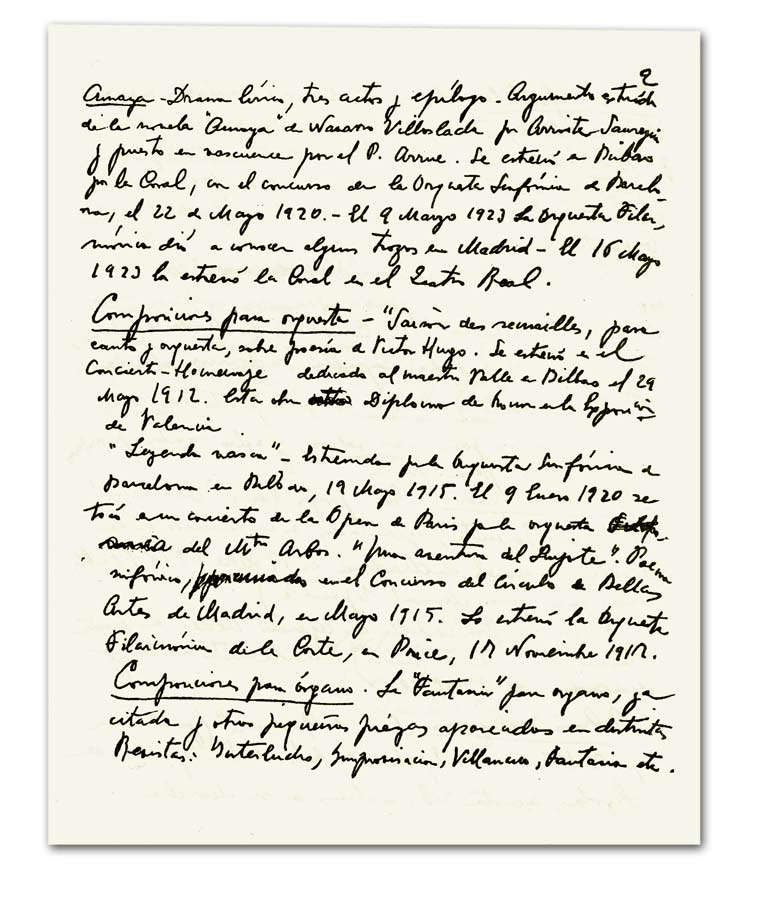 2
Amaya - Drama lírico, tres actos y epílogo. Argumento extraído
de la novela "Amaya" de Navarro Villoslada por Arroita Jauregui
y puesto en vascuence por el P. Arrue. Se estrenó en Bilbao
por la Coral, con el concurso de la Orquesta Sinfónica de Barcelo-
na, el 22 de Mayo 1920. - El 9 Marzo 1923 la Orquesta Filar-
mónica dió a conocer algunos trozos en Madrid - El 16 Mayo
1923 la estrenó la Coral en el Teatro Real.
Composiciones para orquesta - "Saison des semailles, para
canto y orquesta, sobre poesía de Victor Hugo. Se estrenó en el
Concierto-Homenaje dedicado al maestro Valle en Bilbao el 29
Mayo 1912. Esta obra Diploma de honor en la Exposición
de Valencia
"Leyenda vasca" - Estrenada por la Orquesta Sinfónica de
Barcelona en Bilbao, 19 Mayo 1915. El 9 Enero 1920 se
tocó en un concierto de la Opera de Paris por la orquesta
del Mtro Arbos. "Una aventura del Quijote". Poema
sinfónico, premiado en el Concurso del Círculo de Bellas
Artes de Madrid, en Mayo 1915. Lo estrenó la Orquesta
Filarmónica de la Corte, en Price, 17 Noviembre 1917.
Composiciones para órgano. La "Fantasia" para organo, ya
citada y otras pequeñas piezas aparecidas en distintas
Revistas: Interludio, Improvisacion, Villancico, Fantasia etc.